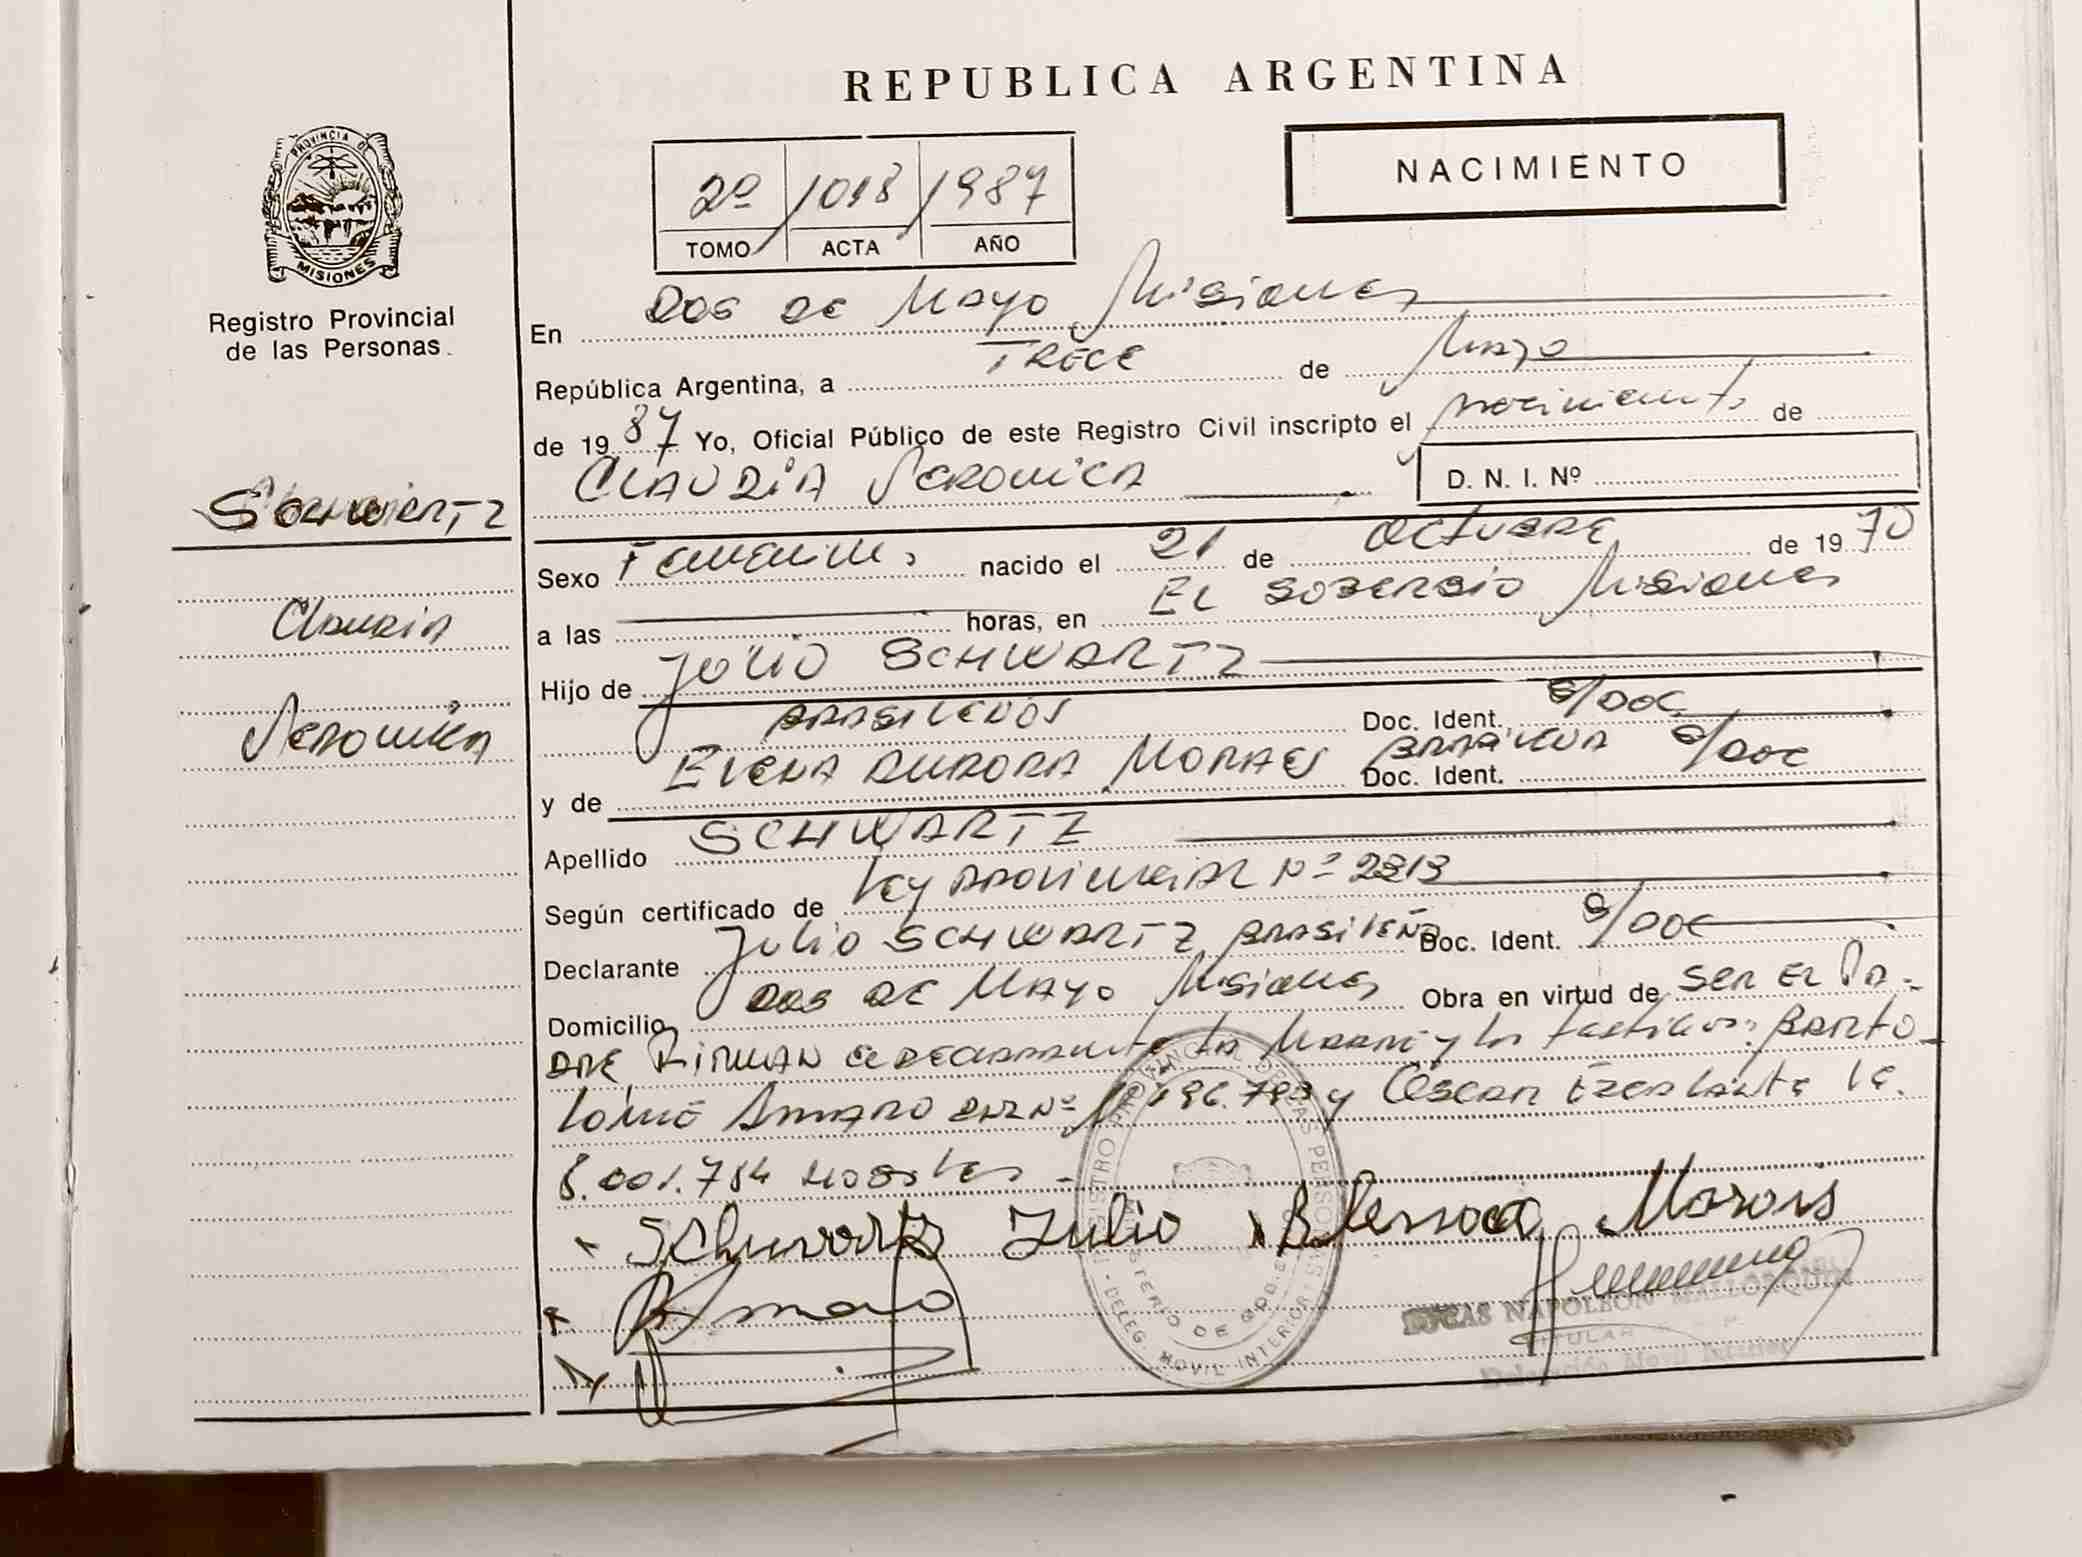 REPUBLICA ARGENTINA
PROVINCIA DE
MISIONES
Registro Provincial
de las Personas.
2º 1018 1987
TOMO ACTA AÑO
NACIMIENTO
En Dos de Mayo Misiones
República Argentina, a TRECE de Mayo
de 1987 Yo, Oficial Público de este Registro Civil inscripto el nacimiento de
CLAUDIA VERONICA
D. N. I. Nº
SCHWARTZ
Claudia
Veronica
Sexo Femenino nacido el 21 de Octubre de 1970
a las horas, en EL SOBERBIO Misiones
Hijo de JULIO SCHWARTZ
Doc. Ident. S/DOC
y de ELENA AURORA MORAES Doc. Ident. S/DOC
Apellido SCHWARTZ
Según certificado de Ley Provincial Nº 2313
Declarante Julio SCHWARTZ BRASILEÑO Doc. Ident. S/DOC
Domicilio DOS DE MAYO Misiones Obra en virtud de SER EL PA-
DRE FIRMAN el declarante la Madre y los testigos: BARTO-
LOME AMARO DNI Nº y OSCAR LE.
8.001.784
Schwartz Julio
Amaro
REGISTRO PROVINCIAL DE LAS PERSONAS
MINISTERIO DE GOB.
DELEG. MOVIL INTERIOR
LUCAS NAPOLEON MALLORQUIN
TITULAR
Delegación Movil